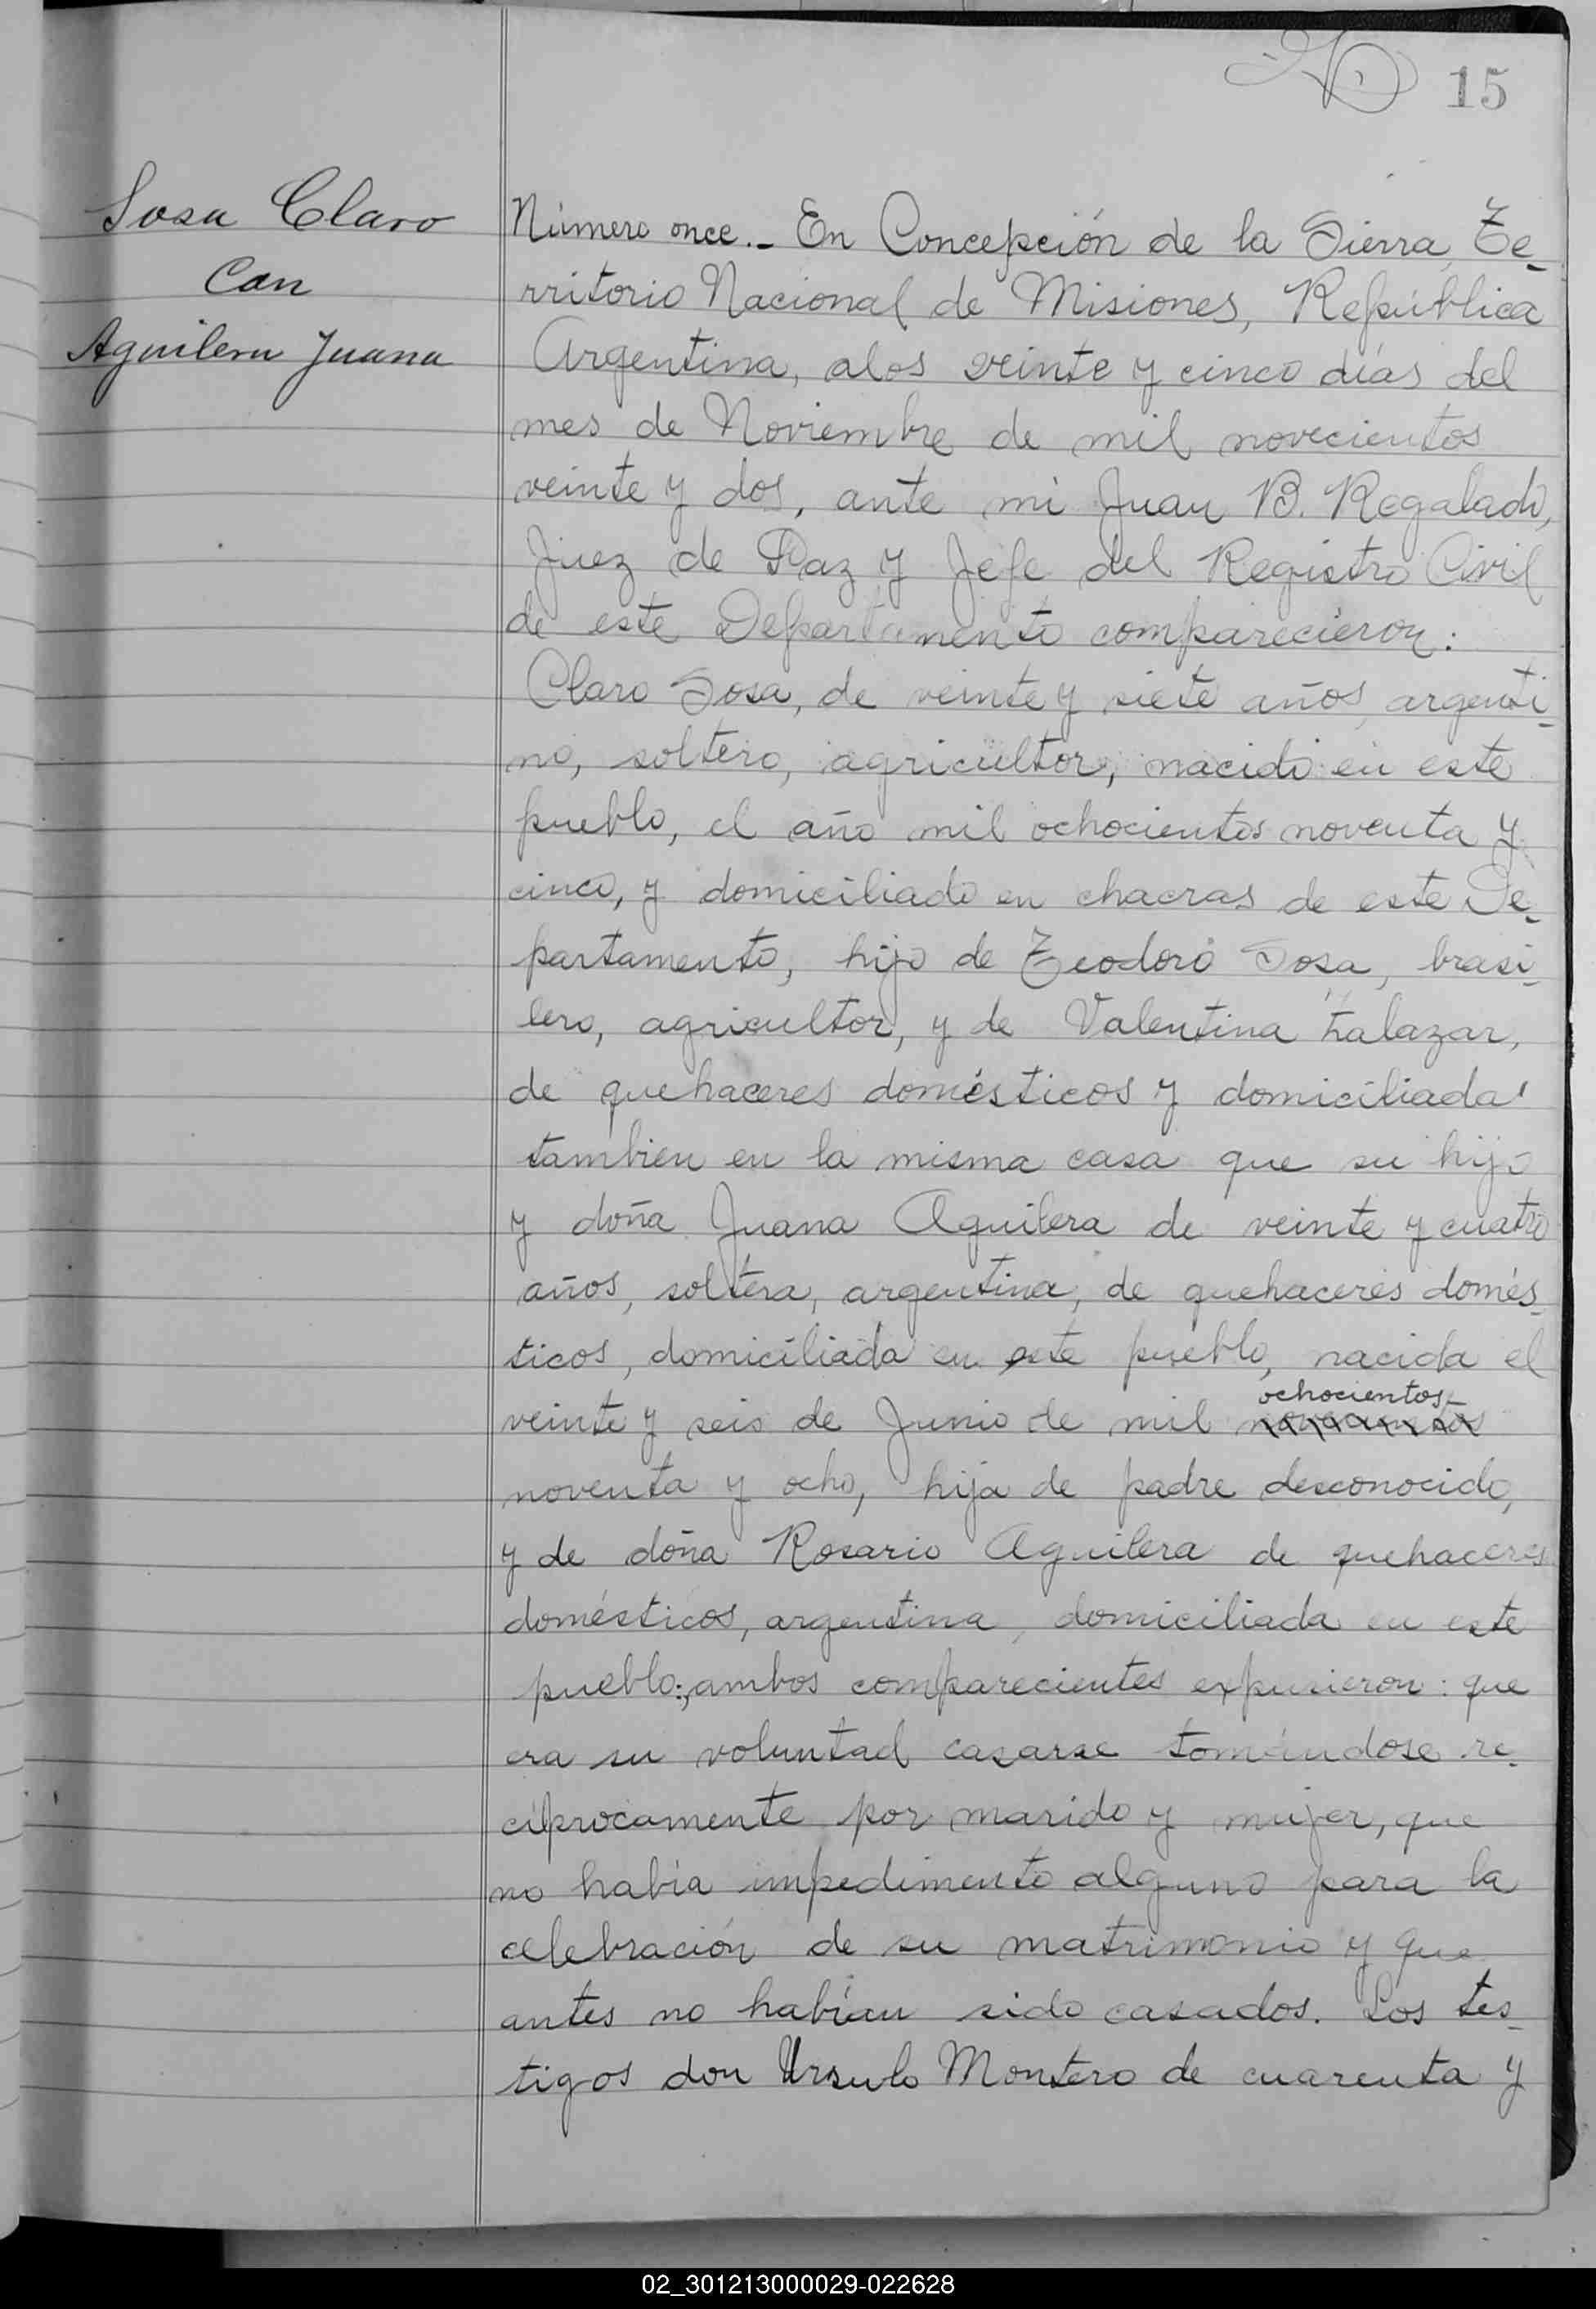 15
Sosa Claro
Con
Aguilera Juana
Número once._ En Concepción de la Sierra, Te_
rritorio Nacional de Misiones, República
Argentina, alos veinte y cinco días del
mes de Noviembre de mil novecientos
veinte y dos, ante mi Juan B. Regalado,
Juez de Paz y Jefe del Registro Civil
de este Departamento comparecieron:
Claro Sosa, de veinte y siete años, argenti_
no, soltero, agricultor, nacido en este
pueblo, el año mil ochocientos noventa y
cinco, y domiciliado en chacras de este De_
partamento, hijo de Teodoro Sosa, brasi_
lero, agricultor, y de Valentina Zalazar,
de quehaceres domésticos y domiciliada
tambien en la misma casa que su hijo
y doña Juana Aguilera de veinte y cuatro
años, soltera, argentina, de quehaceres domés_
ticos, domiciliada en este pueblo, nacida el
ochocientos
veinte y seis de Junio de mil novecientos
noventa y ocho, hija de padre desconocido,
y de doña Rosario Aguilera de quehaceres
domésticos, argentina, domiciliada en este
pueblo:, ambos comparecientes expusieron: que
era su voluntad casarse tomándose re_
ciprocamente por marido y mujer, que
no había impedimento alguno para la
celebración de su matrimonio y que
antes no habían sido casados. Los tes_
tigos don Ursulo Montero de cuarenta y
02_301213000029-022628